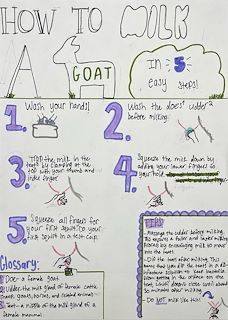 HOW TO MILK
A GOAT
IN 5
easy steps!
1. Wash your hands!
2. Wash the does' udder²
before milking.
3. Trap the milk in the
teats by clamping at the
top with your thumb and
index finger
4. Squeeze the milk down by
adding your lower fingers to
your hold.
5. Squeeze all fingers for
your first squirt. Do your
first squirt in a test cup.
Glossary:
1 Doe- a female goat
2 Udder- the milk gland of female cattle
goats, horses, and related animals
3 Teat- a nipple of the milk gland of a
female mammal
TIPS
- Massage the udder before milking.
This ensures a faster and easier milking
process by encouraging milk to move
into the teats.
- Dip the teats after milking. This
means that you dip the teats in a
solution to keep bacteria
from getting in the
which doesn't close until about
30 minutes after milking.
- Do NOT milk like this!